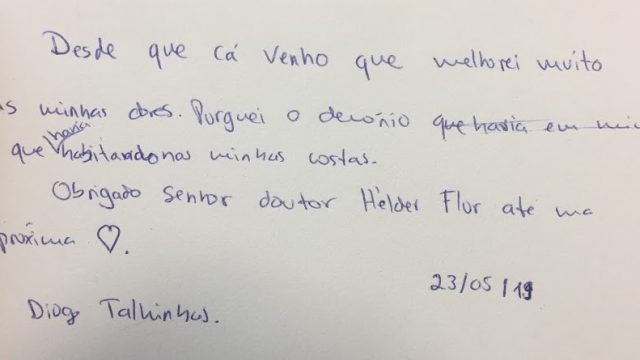 Desde que cá venho que melhorei muito
as minhas dores. Purguei o demónio que havia em mim
que havia habitado nas minhas costas.
Obrigado senhor doutor Hélder Flor até uma
próxima ♡.
23/05/19
Diogo Talhinhas.